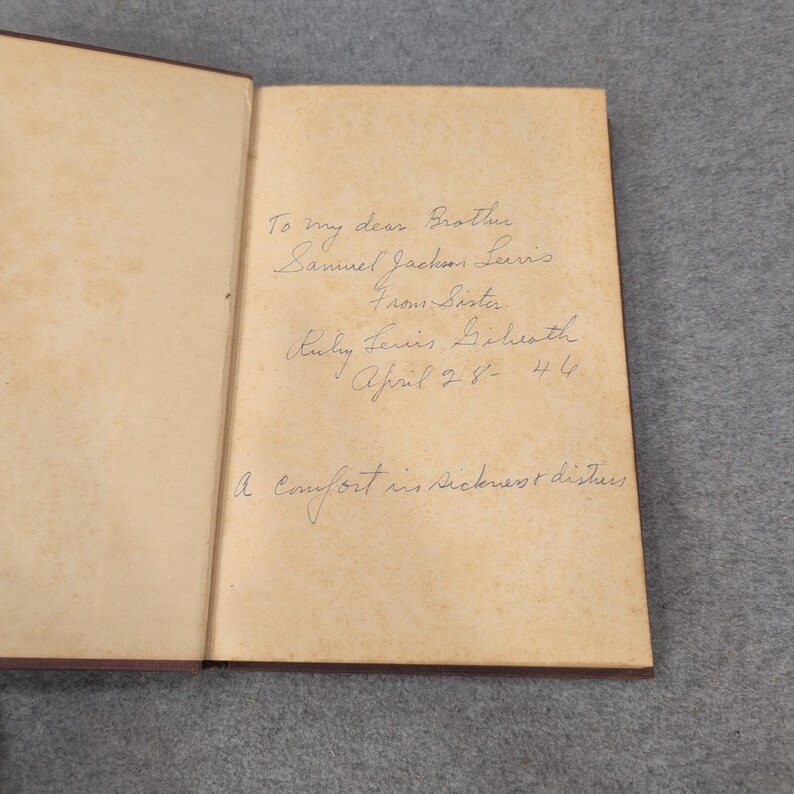 To my dear Brother
Samuel Jackson Lewis
From Sister
Ruby Lewis Gilreath
April 28- 46
A comfort in sickness & distress